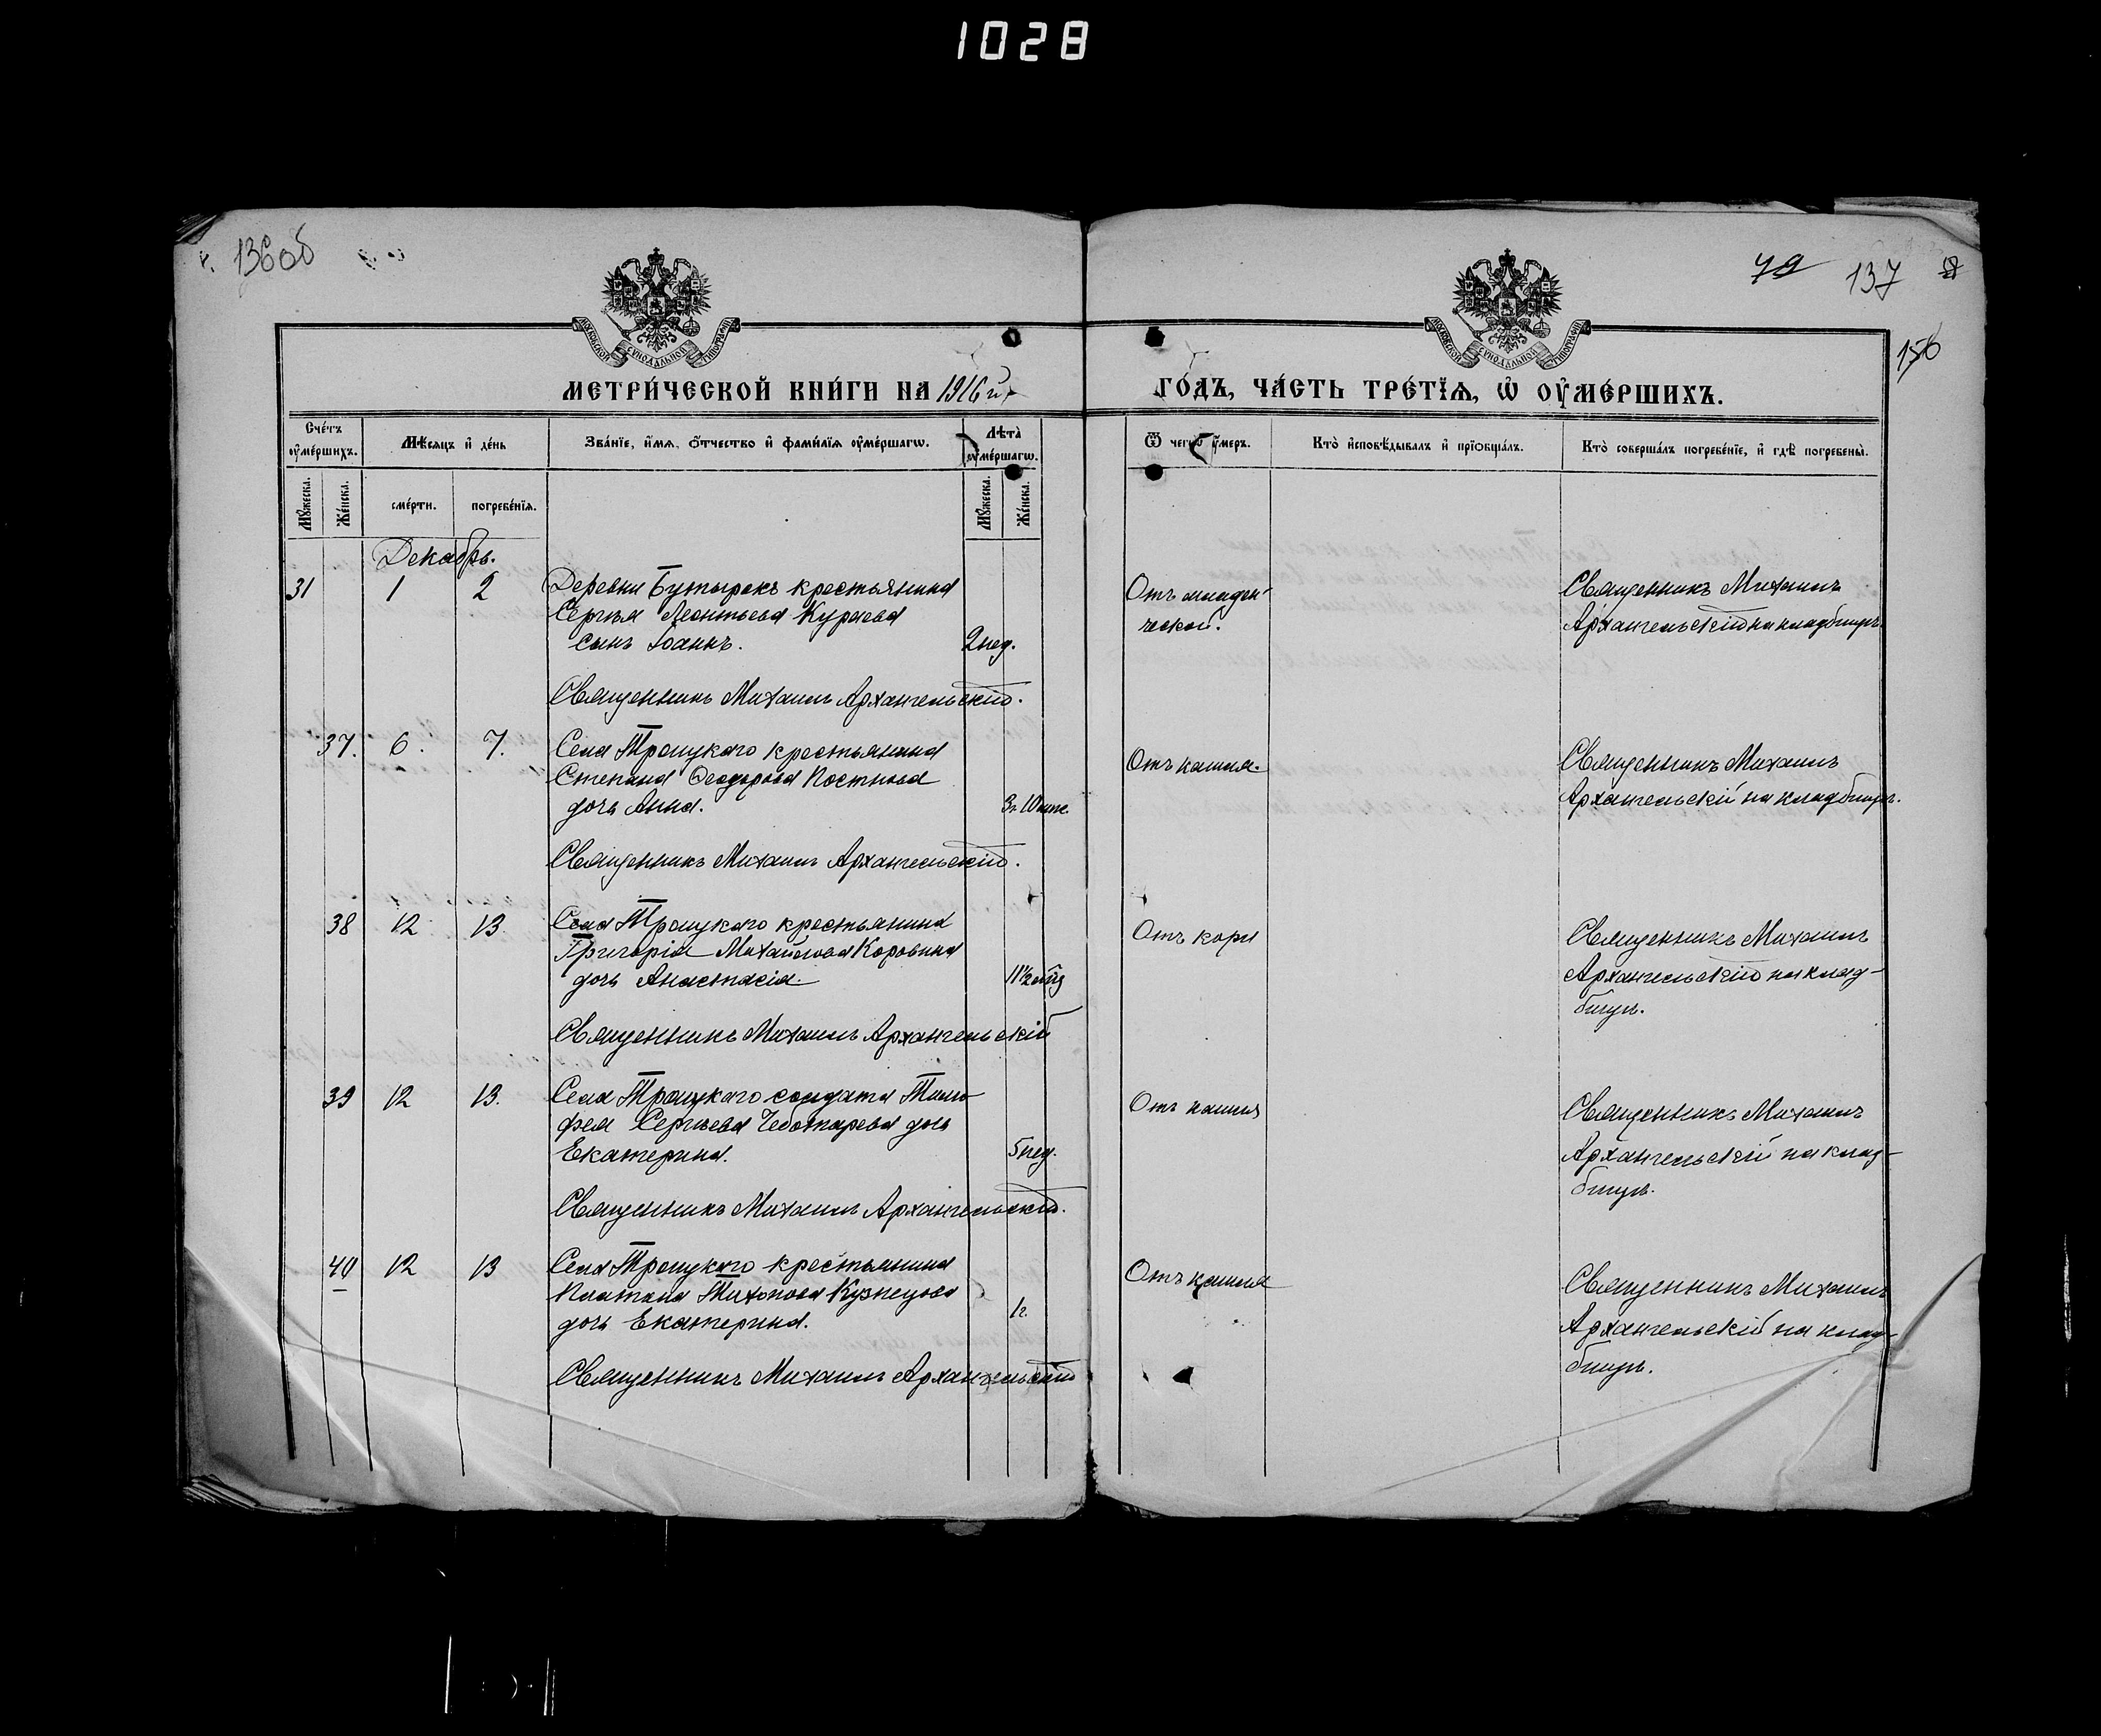 1028
136 об
79 137
156
МОСКОВСКОЙ СѴНОДАЛЬНОЙ ТИПОГРАФІИ
МОСКОВСКОЙ СѴНОДАЛЬНОЙ ТИПОГРАФІИ
МЕТРИ́ЧЕСКОЙ КНИ́ГИ НА 1916 й ГО́ДЪ, ЧА́СТЬ ТРЕ́ТЇѦ, Ѿ ОУМЕ́РШИХЪ.
Сче́тъ оумершихъ.
Мѣсяцъ и де́нь
Зва́нїе, и́мя, о́тчество и фами́лїя оуме́ршагѡ.
Лѣта̀ оуме́ршагѡ.
Ѿ чегѡ̀ оумеръ.
Кто̀ исповѣдывалъ и прїѡбща́лъ.
Кто̀ соверша́лъ погребе́нїе, и гдѣ погребены̀.
Мужеска. Же́нска. сме́рти. погребе́нїя. Мужеска. Же́нска.
Декабрь.
31 1 2 Деревни Бутырокъ крестьянина
Сергѣя Леонтьева Кураева
сынъ Іоаннъ. 2 нед.
Отъ младен-
ческой.
Священникъ Михаилъ
Архангельскій на кладбищѣ.
Священникъ Михаилъ Архангельскій.
37. 6. 7. Села Троицкаго крестьянина
Степана Ѳеодорова Постнова
дочь Анна. 3 г. 10 мѣс.
Отъ кашля.
Священникъ Михаилъ
Архангельскій на кладбищѣ.
Священникъ Михаилъ Архангельскій.
38 12 13. Села Троицкаго крестьянина
Григорія Михайлова Коровина
дочь Анастасія. 11½ мѣс
Отъ кори
Священникъ Михаилъ
Архангельскій на клад-
бищѣ.
Священникъ Михаилъ Архангельскій
39 12 13. Села Троицкаго солдата Тимо-
фея Сергѣева Чеботарева дочь
Екатерина. 5 нед.
Отъ кашля
Священникъ Михаилъ
Архангельскій на клад-
бищѣ.
Священникъ Михаилъ Архангельскій.
40 12 13 Села Троицкаго крестьянина
Платона Тихонова Кузнецова
дочь Екатерина. 1 г.
Отъ кашля
Священникъ Михаилъ
Архангельскій на клад-
бищѣ.
Священникъ Михаилъ Архангельскій